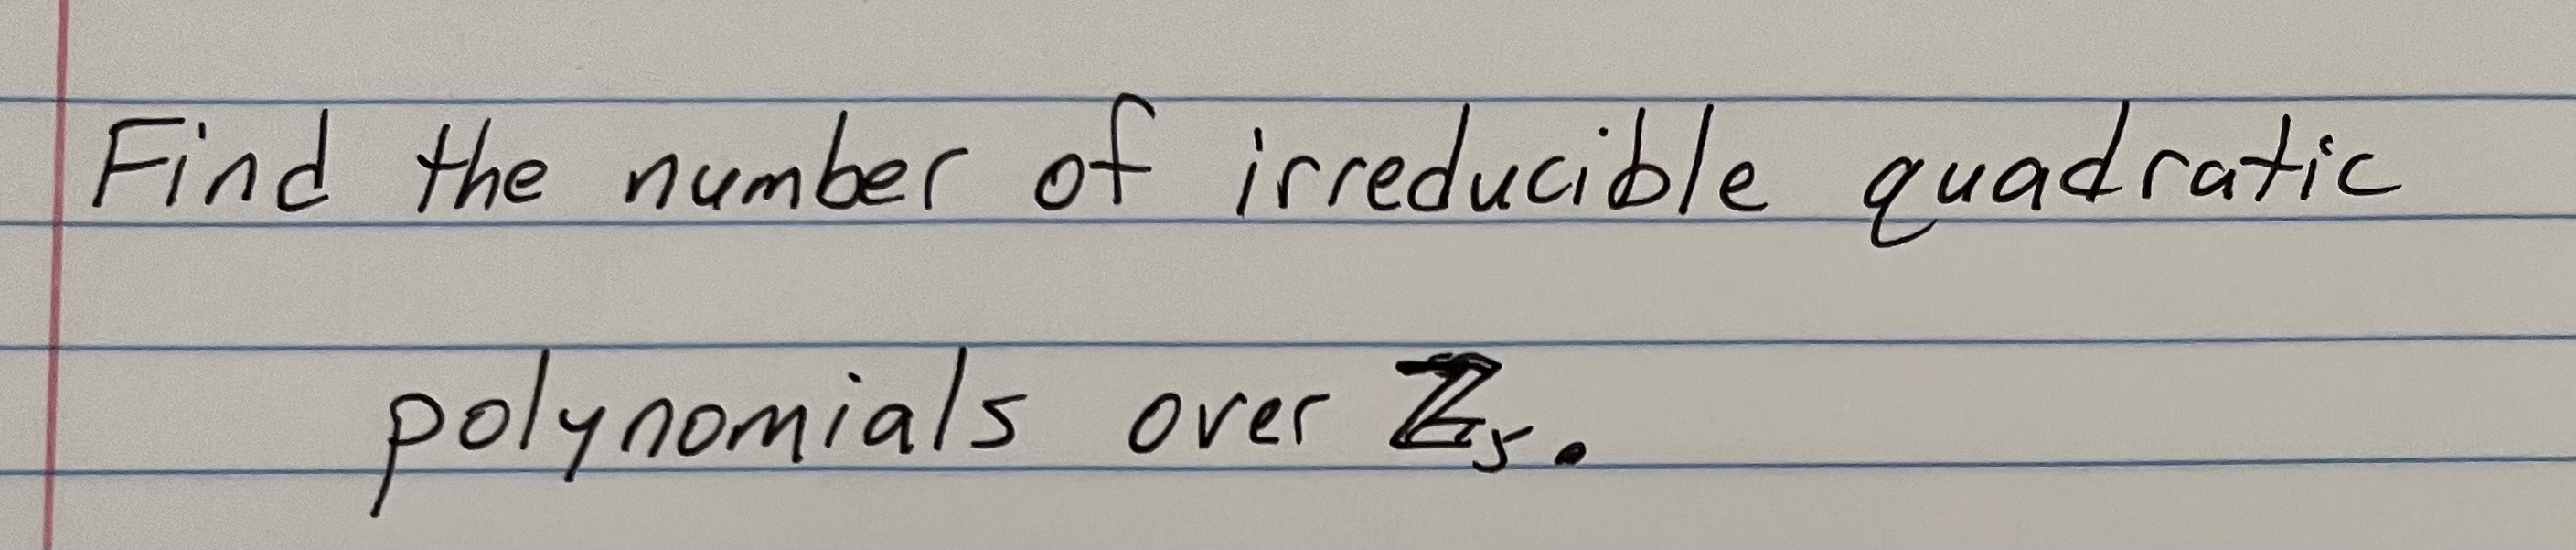 Find the number of irreducible quadratic
polynomials over ℤ₅.